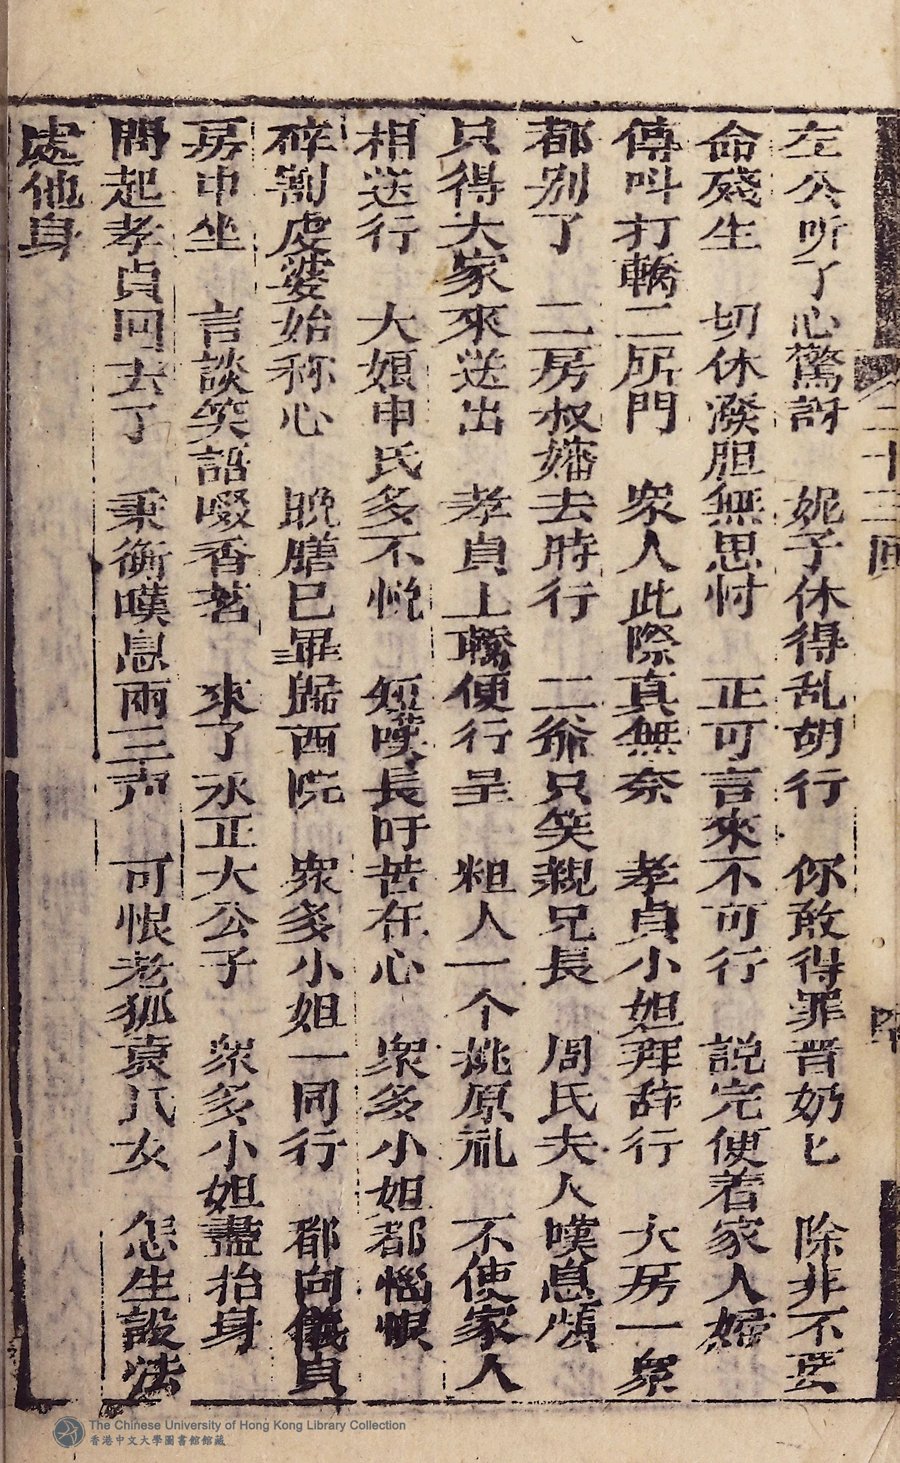 左公听了心驚訝　妮子休得乱胡行　你敢得罪晋奶匕　除非不要
命殘生　切休潑胆無思忖　正可言來不可行　説完便着家人婦
傳呌打轎二㕔門　衆人此際真無奈　孝貞小姐拜辞行　大房一衆
都别了　二房叔嬸去時行　二爺只笑親兄長　周氏夫人嘆息頻
只得大家來送出　孝貞上轎便行呈　粗人一个挑原礼　不使家人
相送行　大娘申氏多不悦　短嘆長吁苦在心　衆多小姐都惱恨
碎割虔婆始称心　晚膳已畢歸西院　衆多小姐一同行　都向儀貞
房中坐　言談笑語啜香茗　來了永正大公子　衆多小姐盡抬身
問起孝貞囘去了　秉衡嘆息兩三声　可恨老狐袁氏女　怎生設法
處他身
二十三囘
The Chinese University of Hong Kong Library Collection
香港中文大學圖書館館藏